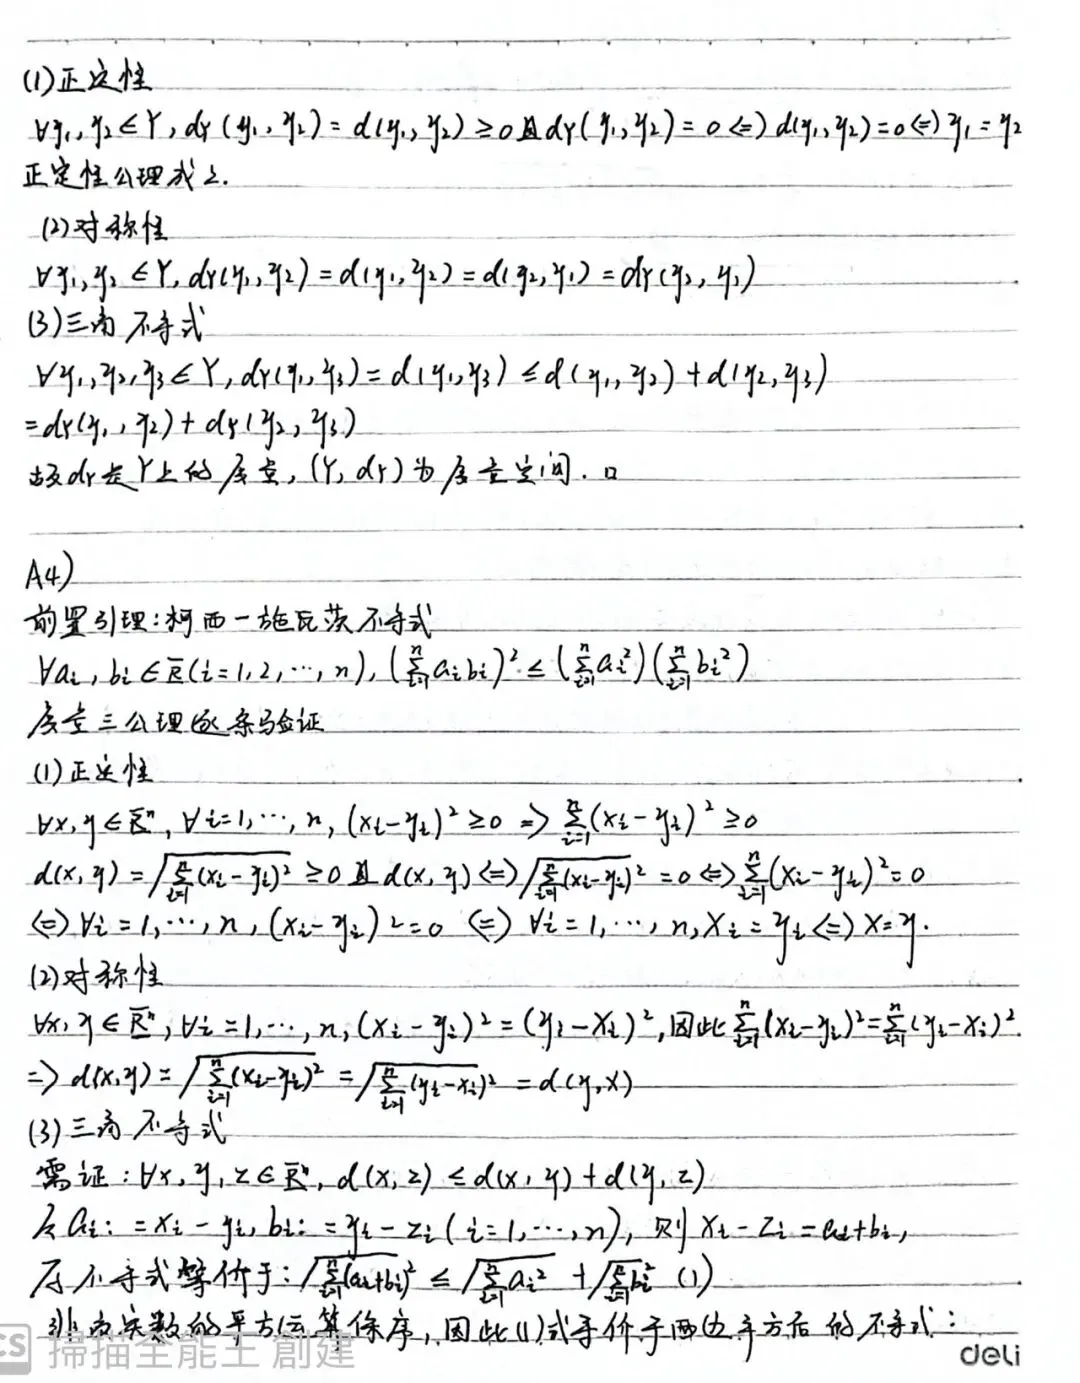 (1)正定性
∀y₁,y₂∈Y,dY(y₁,y₂)=d(y₁,y₂)≥0且dY(y₁,y₂)=0⇔d(y₁,y₂)=0⇔y₁=y₂
正定性公理成立.
(2)对称性
∀y₁,y₂∈Y,dY(y₁,y₂)=d(y₁,y₂)=d(y₂,y₁)=dY(y₂,y₁)
(3)三角不等式
∀y₁,y₂,y₃∈Y,dY(y₁,y₃)=d(y₁,y₃)≤d(y₁,y₂)+d(y₂,y₃)
=dY(y₁,y₂)+dY(y₂,y₃)
故dY是Y上的度量,(Y,dY)为度量空间.□
A4)
前置引理:柯西一施瓦茨不等式
∀aᵢ,bᵢ∈R(i=1,2,…,n),(∑ⁿᵢ₌₁aᵢbᵢ)²≤(∑ⁿᵢ₌₁aᵢ²)(∑ⁿᵢ₌₁bᵢ²)
度量三公理逐条验证
(1)正定性
∀x,y∈Rⁿ,∀i=1,…,n,(xᵢ-yᵢ)²≥0⇒∑ⁿᵢ₌₁(xᵢ-yᵢ)²≥0
d(x,y)=√∑ⁿᵢ₌₁(xᵢ-yᵢ)²≥0且d(x,y)⇔√∑ⁿᵢ₌₁(xᵢ-yᵢ)²=0⇔∑ⁿᵢ₌₁(xᵢ-yᵢ)²=0
⇔∀i=1,…,n,(xᵢ-yᵢ)²=0⇔∀i=1,…,n,xᵢ=yᵢ⇔x=y.
(2)对称性
∀x,y∈Rⁿ,∀i=1,…,n,(xᵢ-yᵢ)²=(yᵢ-xᵢ)²,因此∑ⁿᵢ₌₁(xᵢ-yᵢ)²=∑ⁿᵢ₌₁(yᵢ-xᵢ)².
⇒d(x,y)=√∑ⁿᵢ₌₁(xᵢ-yᵢ)²=√∑ⁿᵢ₌₁(yᵢ-xᵢ)²=d(y,x)
(3)三角不等式
需证:∀x,y,z∈Rⁿ,d(x,z)≤d(x,y)+d(y,z)
令aᵢ:=xᵢ-yᵢ,bᵢ:=yᵢ-zᵢ(i=1,…,n),则xᵢ-zᵢ=aᵢ+bᵢ,
原不等式等价于:√∑ⁿᵢ₌₁(aᵢ+bᵢ)²≤√∑ⁿᵢ₌₁aᵢ²+√∑ⁿᵢ₌₁bᵢ² (1)
非负实数的平方运算保序,因此(1)式等价于两边平方后的不等式:
CS 掃描全能王 創建
deli